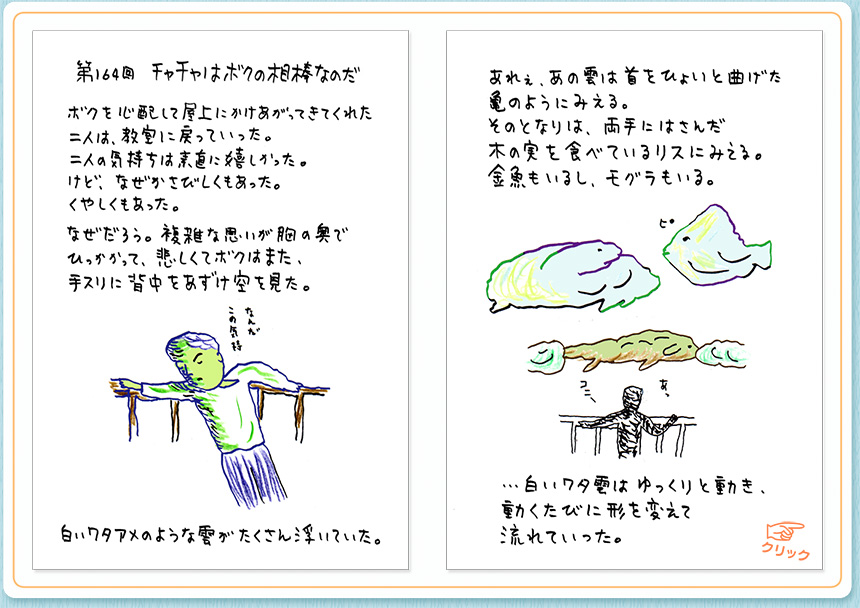 第164回 チャチャはボクの相棒なのだ
ボクを心配して屋上にかけあがってきてくれた
二人は、教室に戻っていった。
二人の気持ちは素直に嬉しかった。
けど、なぜかさびしくもあった。
くやしくもあった。
なぜだろう。複雑な思いが胸の奥で
ひっかかって、悲しくてボクはまた、
手スリに背中をあずけ空を見た。
なんだ
この気持
白いワタアメのような雲がたくさん浮いていた。
あれぇ、あの雲は首をひょいと曲げた
亀のようにみえる。
そのとなりは、両手にはさんだ
木の実を食べているリスにみえる。
金魚もいるし、モグラもいる。
ピ
あっ
…白いワタ雲はゆっくりと動き、
動くたびに形を変えて
流れていった。
クリック